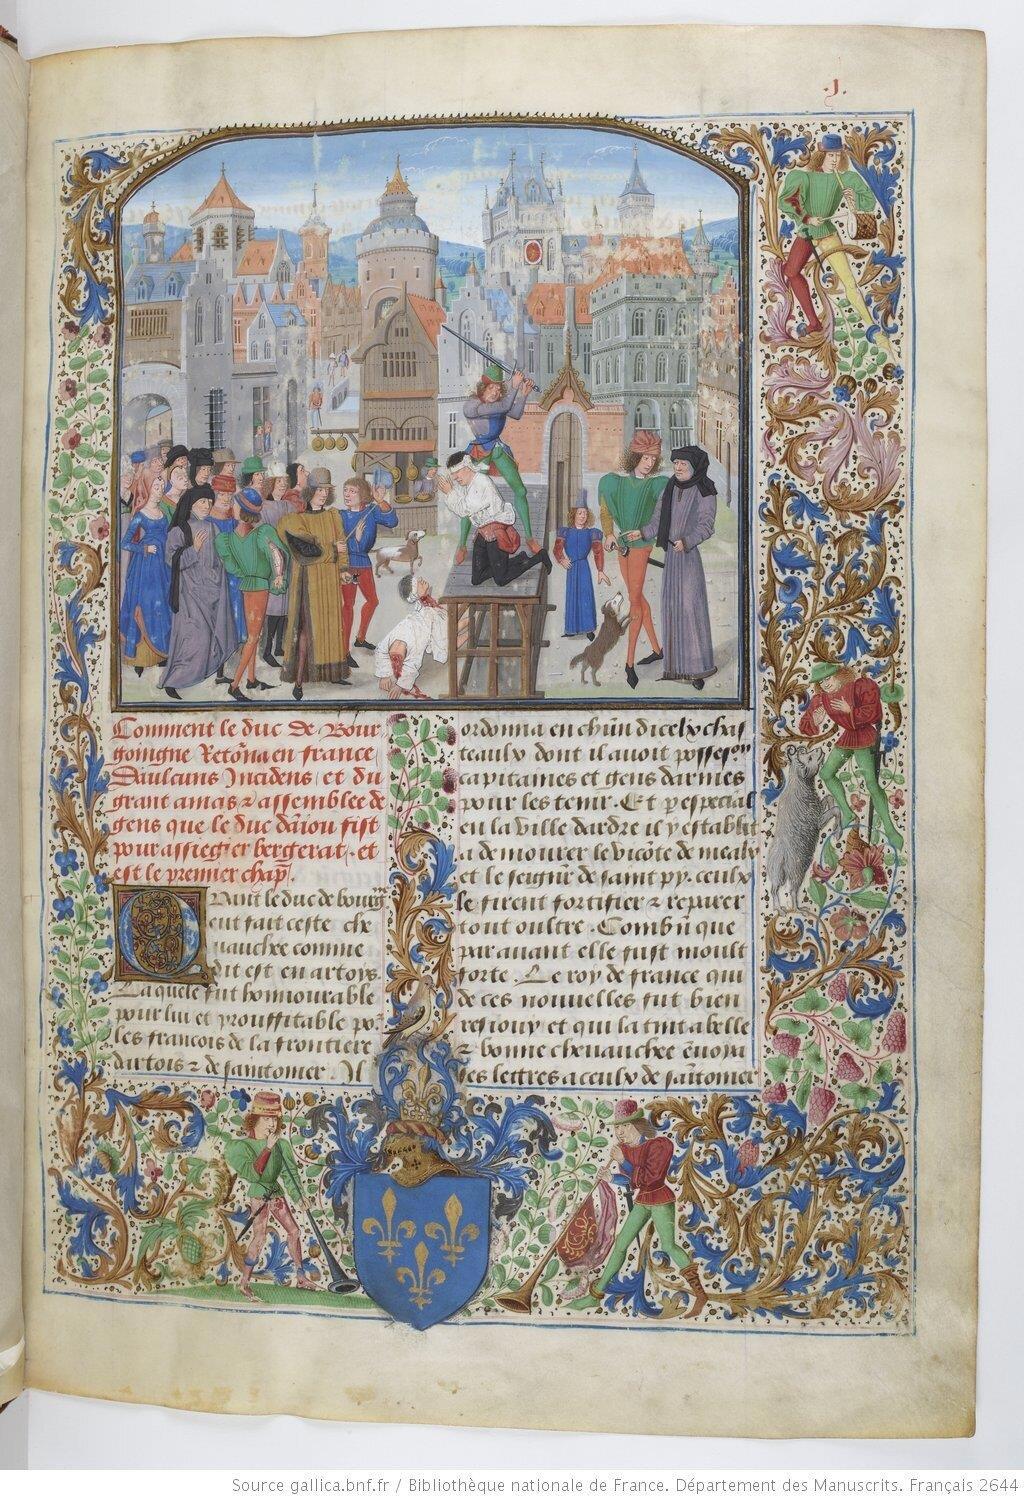 .J.
Comment le duc de Bour
goingne Retorna en france
Daulcuns Incidens et du
grant amas & assemblee de
gens que le duc daniou fist
pour assiegier bergerat. et
est le premier chap
Quant le duc de bourg
eut fait ceste che
uauchee comme
dit est en artoys
Laquele fut honnourable
pour lui et prouffitable po
les francois de la frontiere
dartois & de saintomer. Il
ordonna en chun dicelx chas
teaulx dont il auoit
capitaines et gens darmes
pour les tenir. Et p especial
en la ville dardre il y establit
a demourer le viconte de meaulx
et le seignr de saint py. ceulx
le firent fortifier & reparer
tout oultre. Combn que
par auant elle fust moult
forte. Le roy de france qui
de ces nouuelles fut bien
resiouy et qui la tint a belle
& bonne cheuauchee enuoia
ses lettres a ceulx de santomer
Source gallica.bnf.fr / Bibliothèque nationale de France. Département des Manuscrits. Français 2644